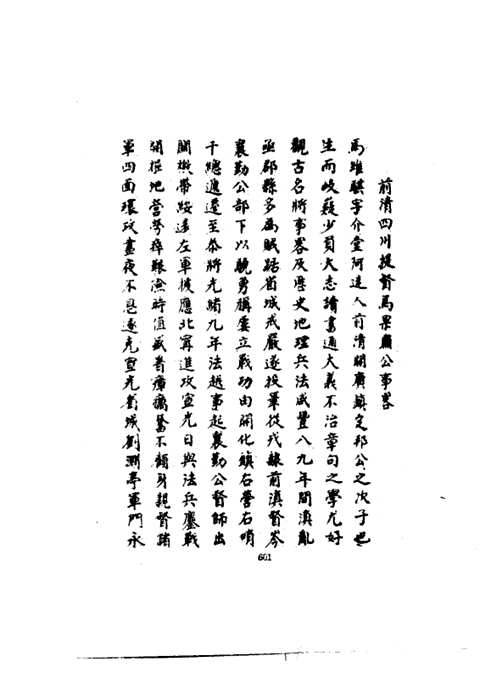 前清四川提督馬果肅公事畧
馬維騏字介堂阿迷人前清開廣鎮定邦公之次子也
生而岐嶷少負大志讀書通大義不治章句之學尤好
觀古名將事畧及歷史地理兵法咸豐八九年間滇亂
亟郡縣多為賊踞省城戒嚴遂投筆從戎隸前滇督岑
襄勤公部下以驍勇稱屢立戰功由開化鎮右營右哨
千總遞遷至叅將光緒九年法越事起襄勤公督師出
關檄帶綏遠左軍援應北甯進攻宣光日與法兵鏖戰
開挖地營勞瘁艱險時值盛暑瘴癘饑不顧身親督諸
軍四面環攻晝夜不息遂克宣光省城劉淵亭軍門永
601